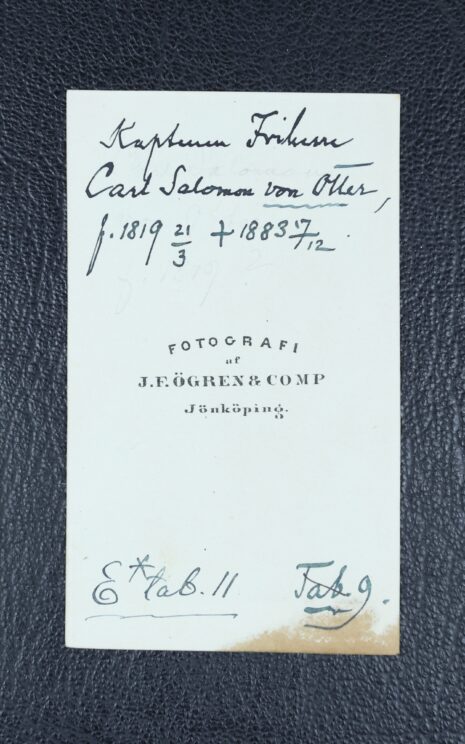 Kaptenen Friherre
Carl Salomon von Otter,
f. 1819 21/3 + 1883 7/12.
FOTOGRAFI
af
J.F. ÖGREN & COMP
Jönköping.
E* tab. 11 Tab 9.